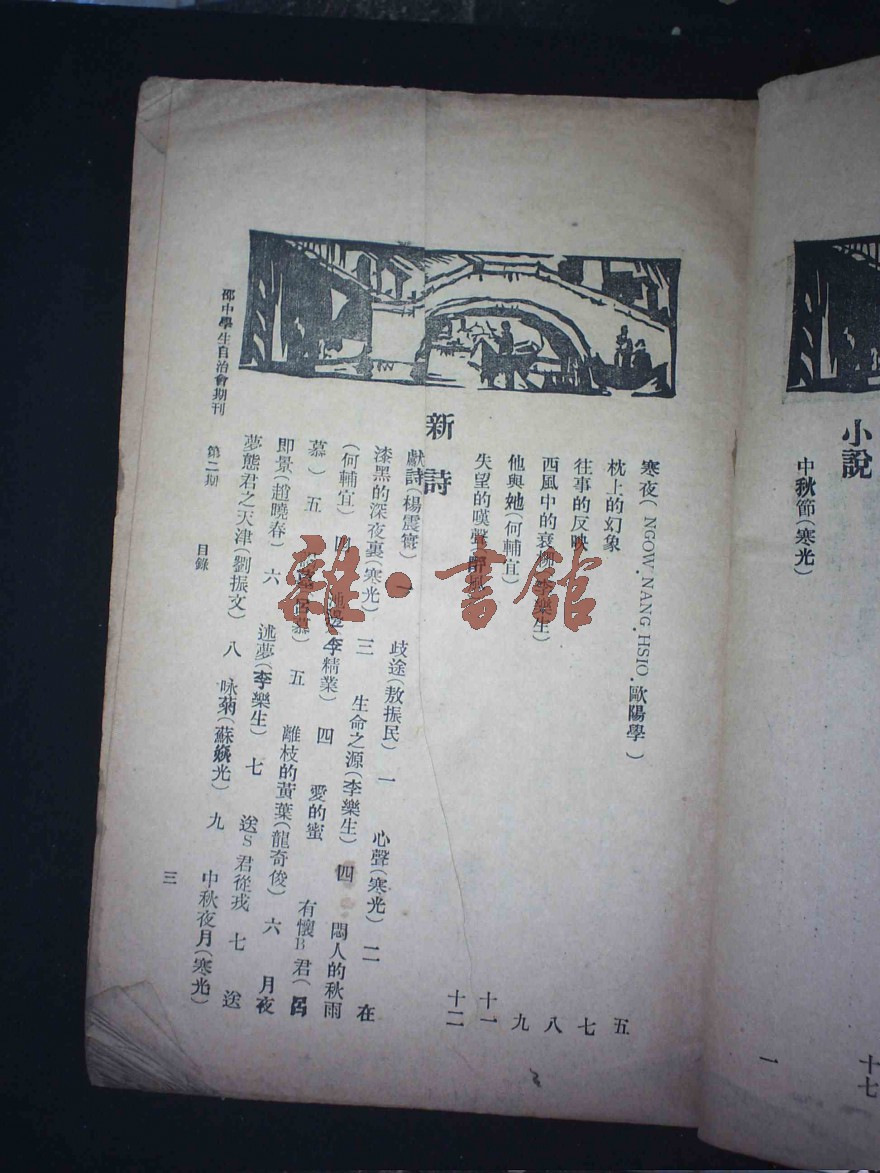 小說
中秋節(寒光)
一
十七
寒夜(NGOW.NANG.HSIO.歐陽學) 五
枕上的幻象
往事的反映 七
西風中的衰柳(李樂生) 八
他與她(何輔宜) 九
失望的嘆聲 十一
十二
新詩
獻詩(楊震寰) 一 歧途(敖振民) 一 心聲(寒光) 二 在
漆黑的深夜裏(寒光) 三 生命之源(李樂生) 四 悶人的秋雨
(何輔宜) 四 (李精業) 四 愛的蜜 有懷B君(呂
慕) 五 五 離枝的黃葉(龍奇俊) 六 月夜
即景(趙曉春) 六 述夢(李樂生) 七 送S君從戎 七 送
夢態君之天津(劉振文) 八 咏菊(蘇 光) 九 中秋夜月(寒光)
邵中學生自治會期刊 第二期 目錄 三
雜·書館